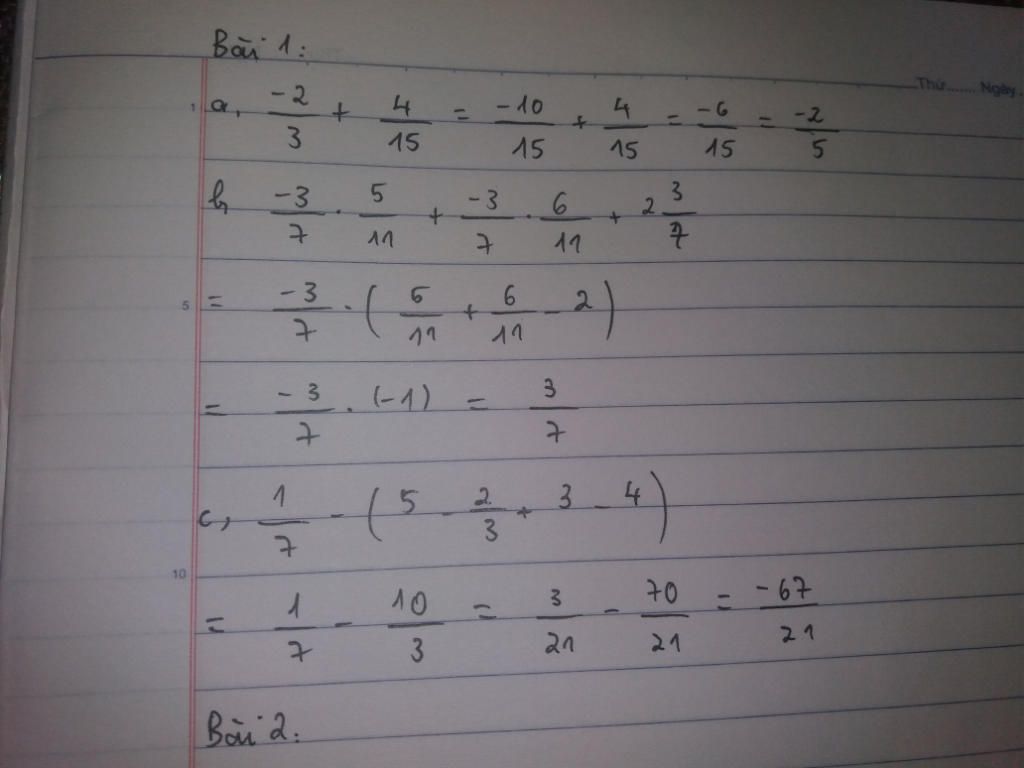 Bài 1:
Thứ....... Ngày.
1
a, -2/3 + 4/15 = -10/15 + 4/15 = -6/15 = -2/5
b, -3/7 . 5/11 + -3/7 . 6/11 + 2 3/7
5
= -3/7 . ( 5/11 + 6/11 - 2 )
= -3/7 . (-1) = 3/7
c, 1/7 - ( 5 - 2/3 + 3 - 4 )
10
= 1/7 - 10/3 = 3/21 - 70/21 = -67/21
Bài 2: